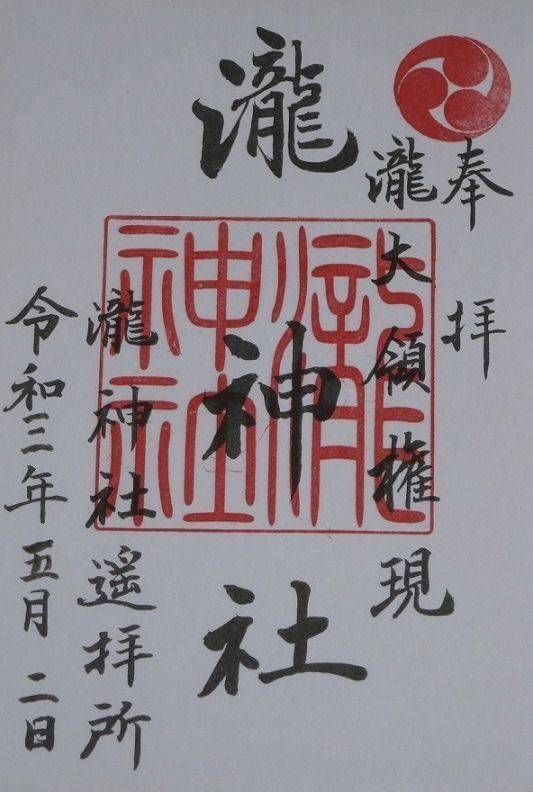 奉拝
瀧大領権現
瀧神社
瀧神社遥拝所
令和三年五月二日
瀧神社